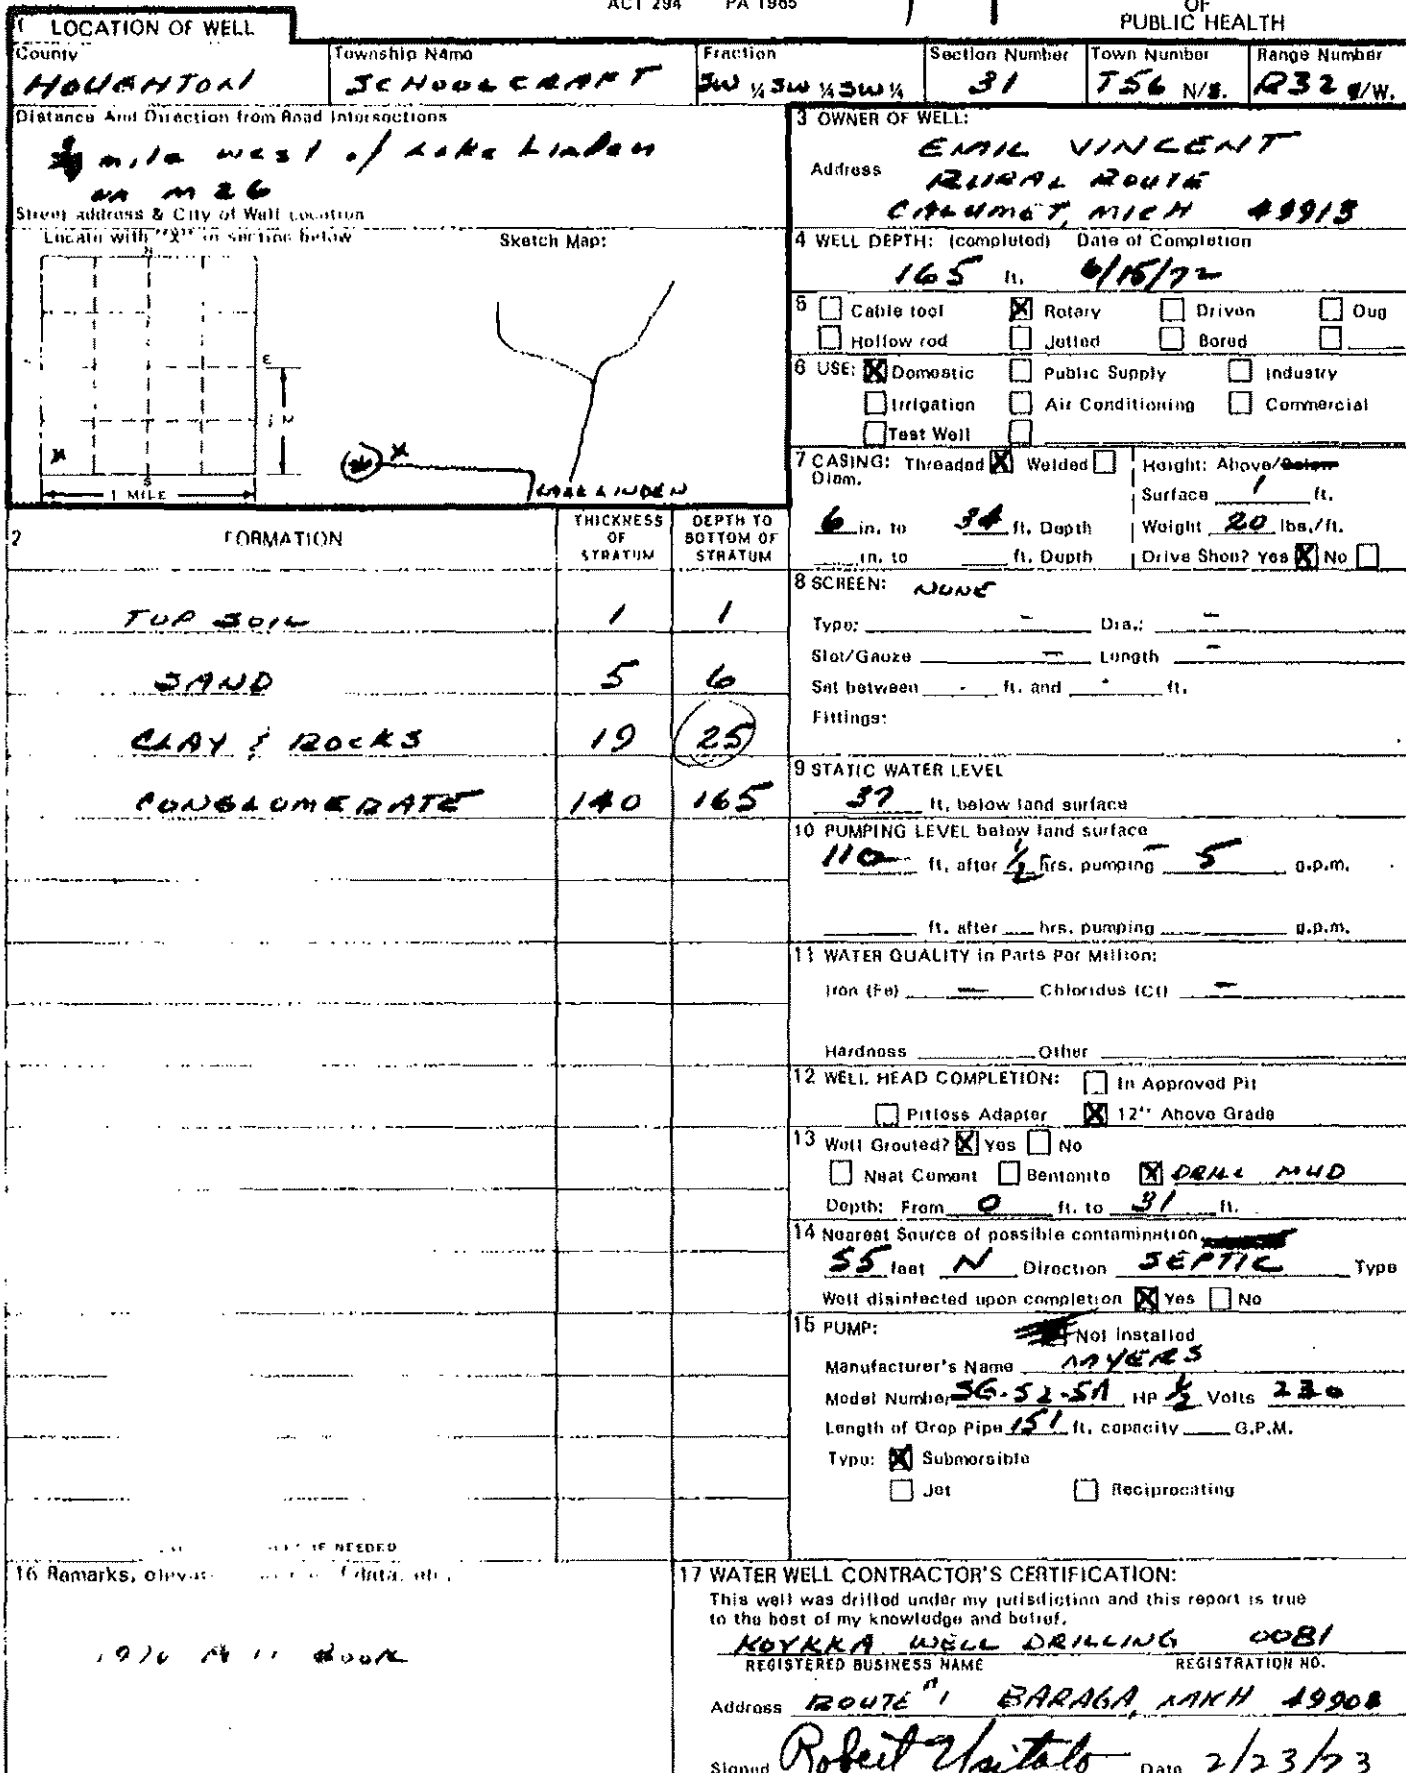 ACT 294 PA 1965
OF
PUBLIC HEALTH
1 LOCATION OF WELL
County Township Name Fraction Section Number Town Number Range Number
HOUGHTON SCHOOLCRAFT SW ¼ SW ¼ SW ¼ 31 T56 N/S. R32 E/W.
Distance And Direction from Road Intersections
mile west of Lake Linden
on M 26
Street address & City of Well Location
Locate with "X" in section below Sketch Map:
N
E
½ M
X
S
1 MILE
X
LAKE LINDEN
3 OWNER OF WELL:
EMIL VINCENT
Address RURAL ROUTE
CALUMET, MICH 49913
4 WELL DEPTH: (completed) Date of Completion
165 ft. 6/15/72
5 Cable tool X Rotary Driven Dug
Hollow rod Jetted Bored
6 USE: X Domestic Public Supply Industry
Irrigation Air Conditioning Commercial
Test Well
7 CASING: Threaded X Welded Height: Above/Below
Diam. Surface 1 ft.
6 in. to 34 ft. Depth Weight 20 lbs./ft.
in. to ft. Depth Drive Shoe? Yes X No
8 SCREEN: NONE
Type: - Dia.: -
Slot/Gauze - Length -
Set between - ft. and - ft.
Fittings:
9 STATIC WATER LEVEL
37 ft. below land surface
10 PUMPING LEVEL below land surface
110 ft. after ½ hrs. pumping 5 g.p.m.
ft. after hrs. pumping g.p.m.
11 WATER QUALITY in Parts Per Million:
Iron (Fe) - Chlorides (Cl) -
Hardness Other
12 WELL HEAD COMPLETION: In Approved Pit
Pitless Adapter X 12" Above Grade
13 Well Grouted? X Yes No
Neat Cement Bentonite X DRILL MUD
Depth: From 0 ft. to 31 ft.
14 Nearest Source of possible contamination
55 feet N Direction SEPTIC Type
Well disinfected upon completion X Yes No
15 PUMP: Not installed
Manufacturer's Name MYERS
Model Number SG-52-5A HP ½ Volts 230
Length of Drop Pipe 151 ft. capacity G.P.M.
Type: X Submersible
Jet Reciprocating
2 FORMATION THICKNESS OF STRATUM DEPTH TO BOTTOM OF STRATUM
TOP SOIL 1 1
SAND 5 6
CLAY & ROCKS 19 25
CONGLOMERATE 140 165
IF NEEDED
16 Remarks, data, etc.
17 WATER WELL CONTRACTOR'S CERTIFICATION:
This well was drilled under my jurisdiction and this report is true
to the best of my knowledge and belief.
KOYKKA WELL DRILLING 0081
REGISTERED BUSINESS NAME REGISTRATION NO.
Address ROUTE #1 BARAGA, MICH 49908
Signed Robert Usitalo Date 2/23/73